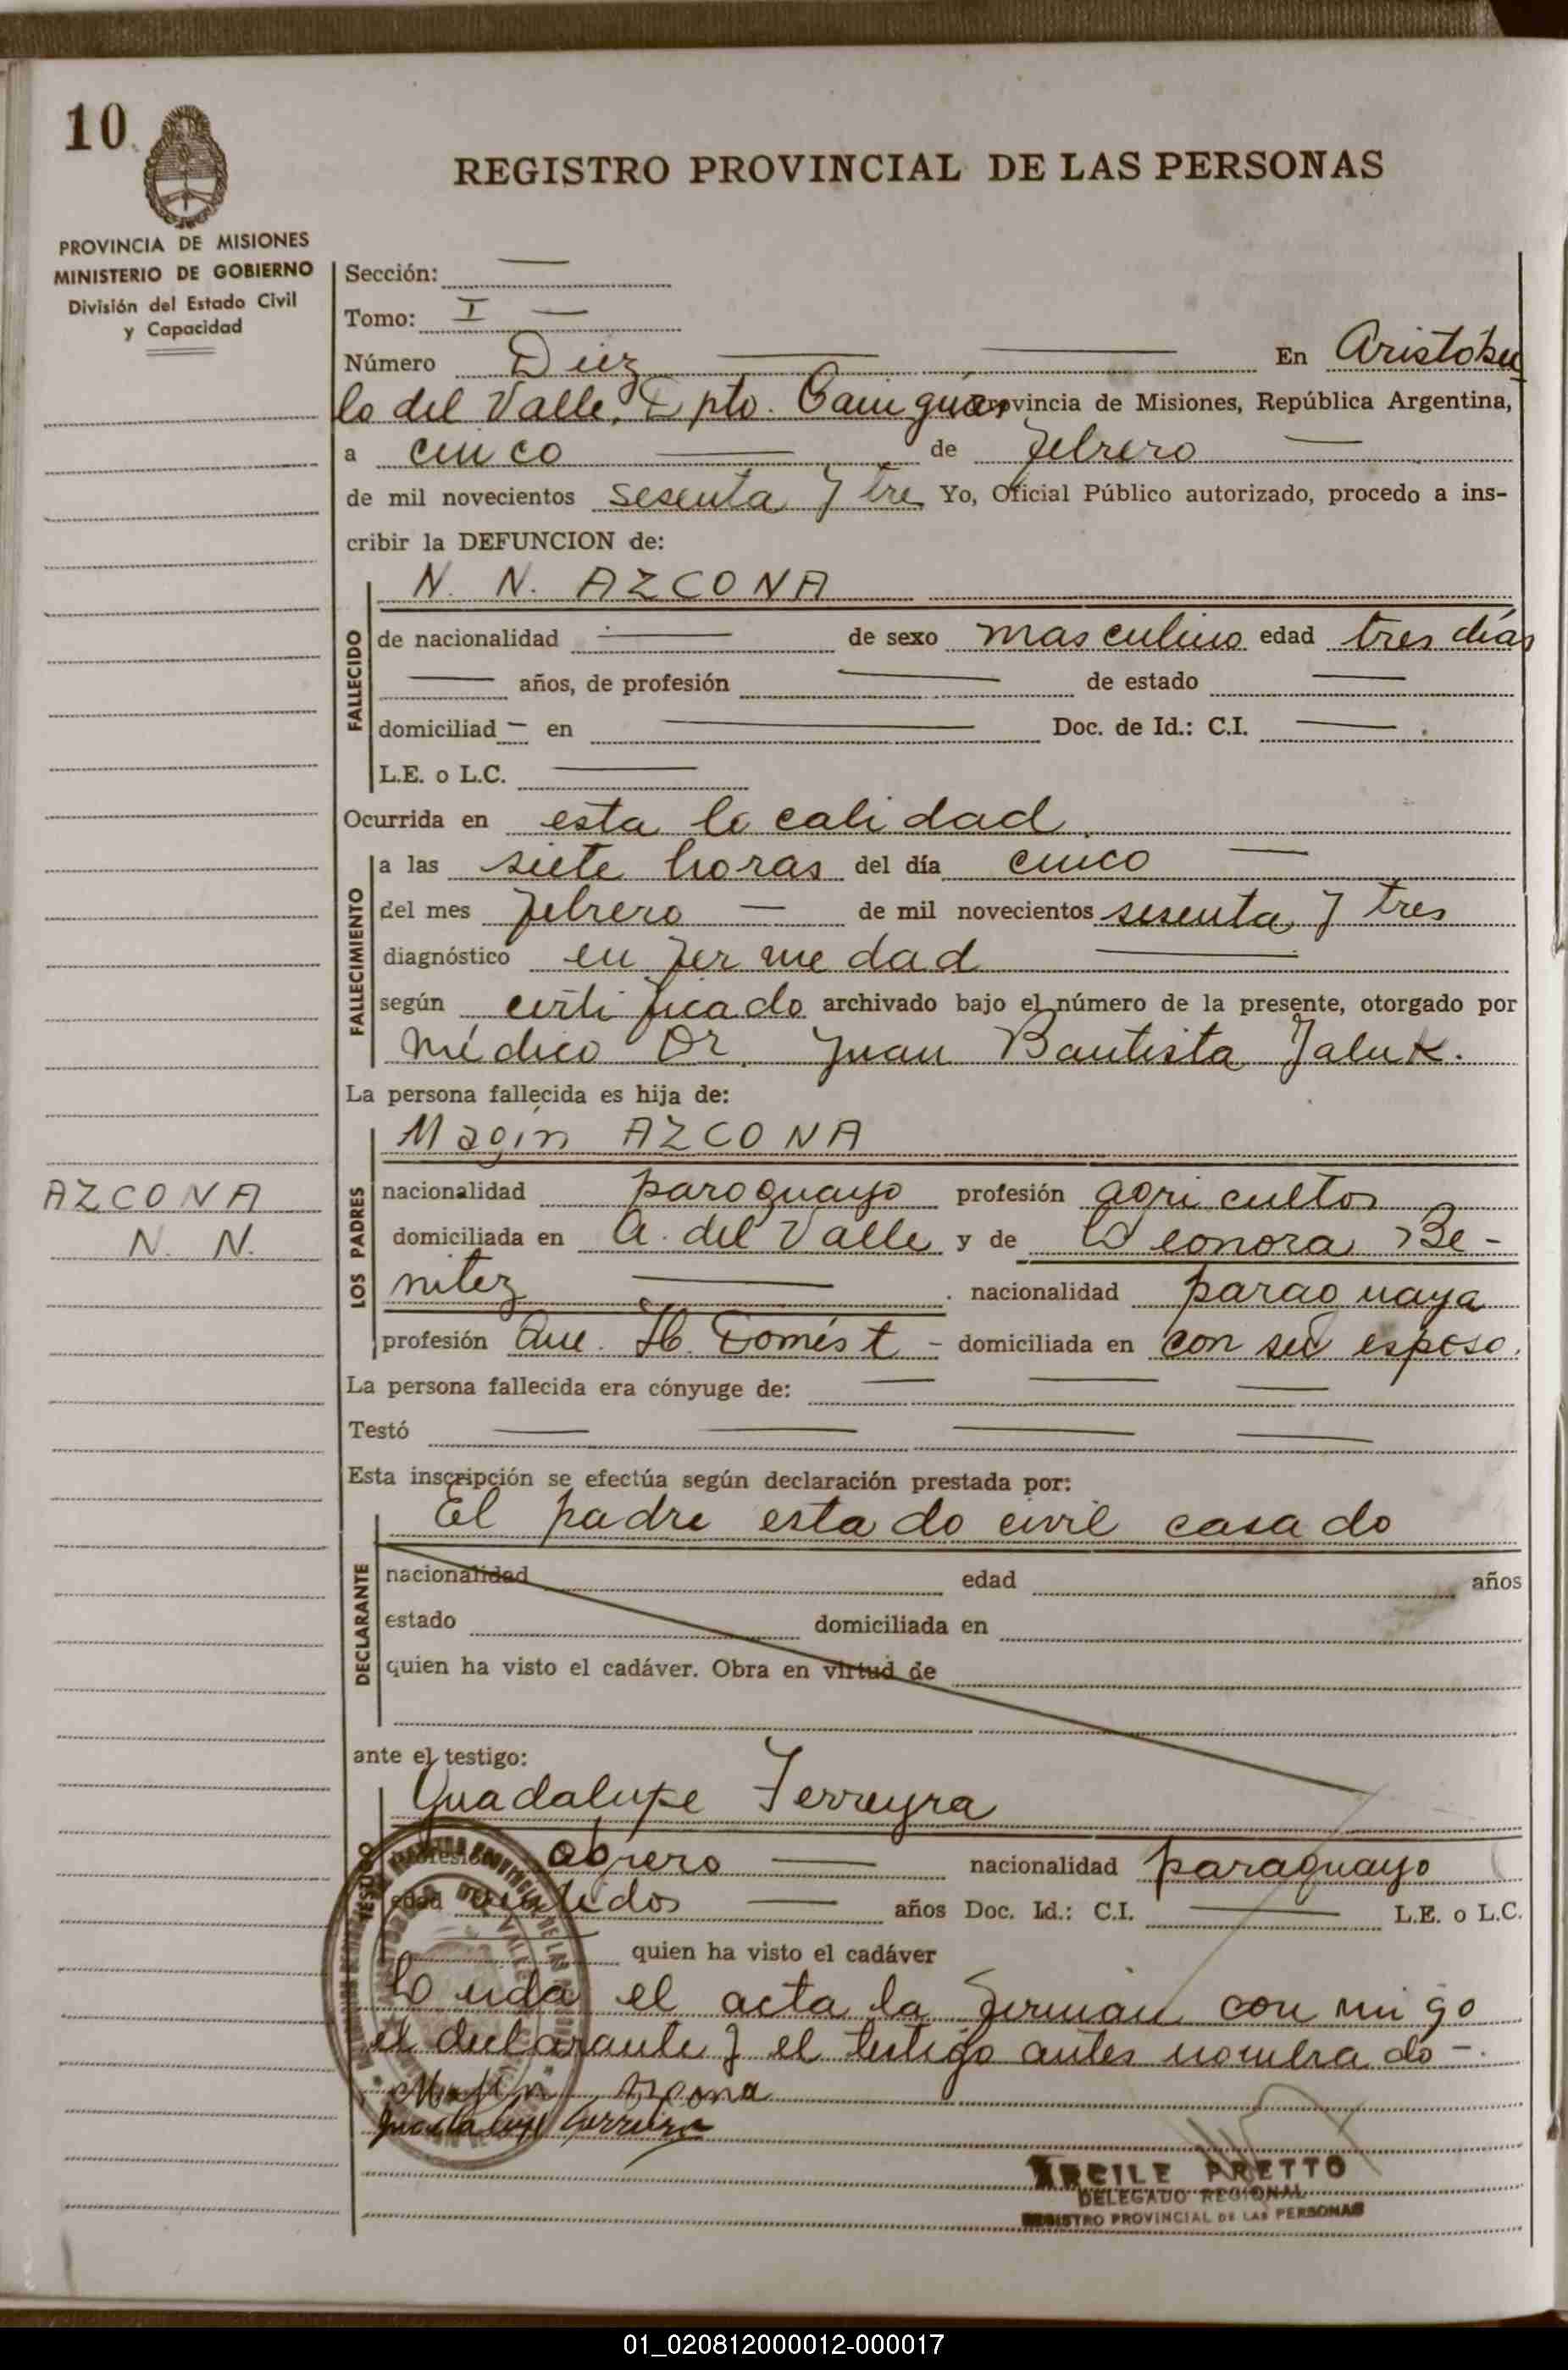 10
REGISTRO PROVINCIAL DE LAS PERSONAS
PROVINCIA DE MISIONES
MINISTERIO DE GOBIERNO
División del Estado Civil
y Capacidad
Sección: —
Tomo: I —
Número Diez — — En Aristóbu
lo del Valle, Dpto. Cainguás Provincia de Misiones, República Argentina,
a cinco — de febrero —
de mil novecientos sesenta y tre Yo, Oficial Público autorizado, procedo a ins-
cribir la DEFUNCION de:
N. N. AZCONA
FALLECIDO
de nacionalidad — de sexo masculino edad tres días
— años, de profesión — de estado —
domiciliad — en — Doc. de Id.: C.I. —
L.E. o L.C. —
Ocurrida en esta localidad
FALLECIMIENTO
a las siete horas del día cinco —
del mes febrero — de mil novecientos sesenta y tres
diagnóstico enfermedad —
según certificado archivado bajo el número de la presente, otorgado por
médico Dr. Juan Bautista Jaluk.
La persona fallecida es hija de:
Magín AZCONA
AZCONA
N. N.
LOS PADRES
nacionalidad paraguayo profesión agricultor
domiciliada en A. del Valle y de Leonora Be-
nitez — . nacionalidad paraguaya
profesión Que. H. Domést - domiciliada en con su esposo.
La persona fallecida era cónyuge de: — — —
Testó — — — —
Esta inscripción se efectúa según declaración prestada por:
El padre estado civil casado
DECLARANTE
nacionalidad edad años
estado domiciliada en
quien ha visto el cadáver. Obra en virtud de
ante el testigo:
Guadalupe Ferreyra
TESTIGO
profesión obrero — nacionalidad paraguayo
edad veintidos — años Doc. Id.: C.I. — L.E. o L.C.
quien ha visto el cadáver
Leída el acta la firman conmigo
el declarante y el testigo antes nombrado -.
Magin Azcona
Guadalupe Ferreira
ARCILE PRETTO
DELEGADO REGIONAL
REGISTRO PROVINCIAL DE LAS PERSONAS
01_020812000012-000017